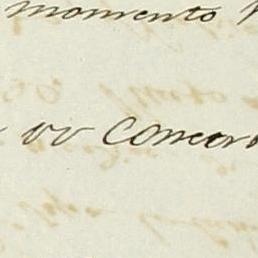 momento
vv Concor